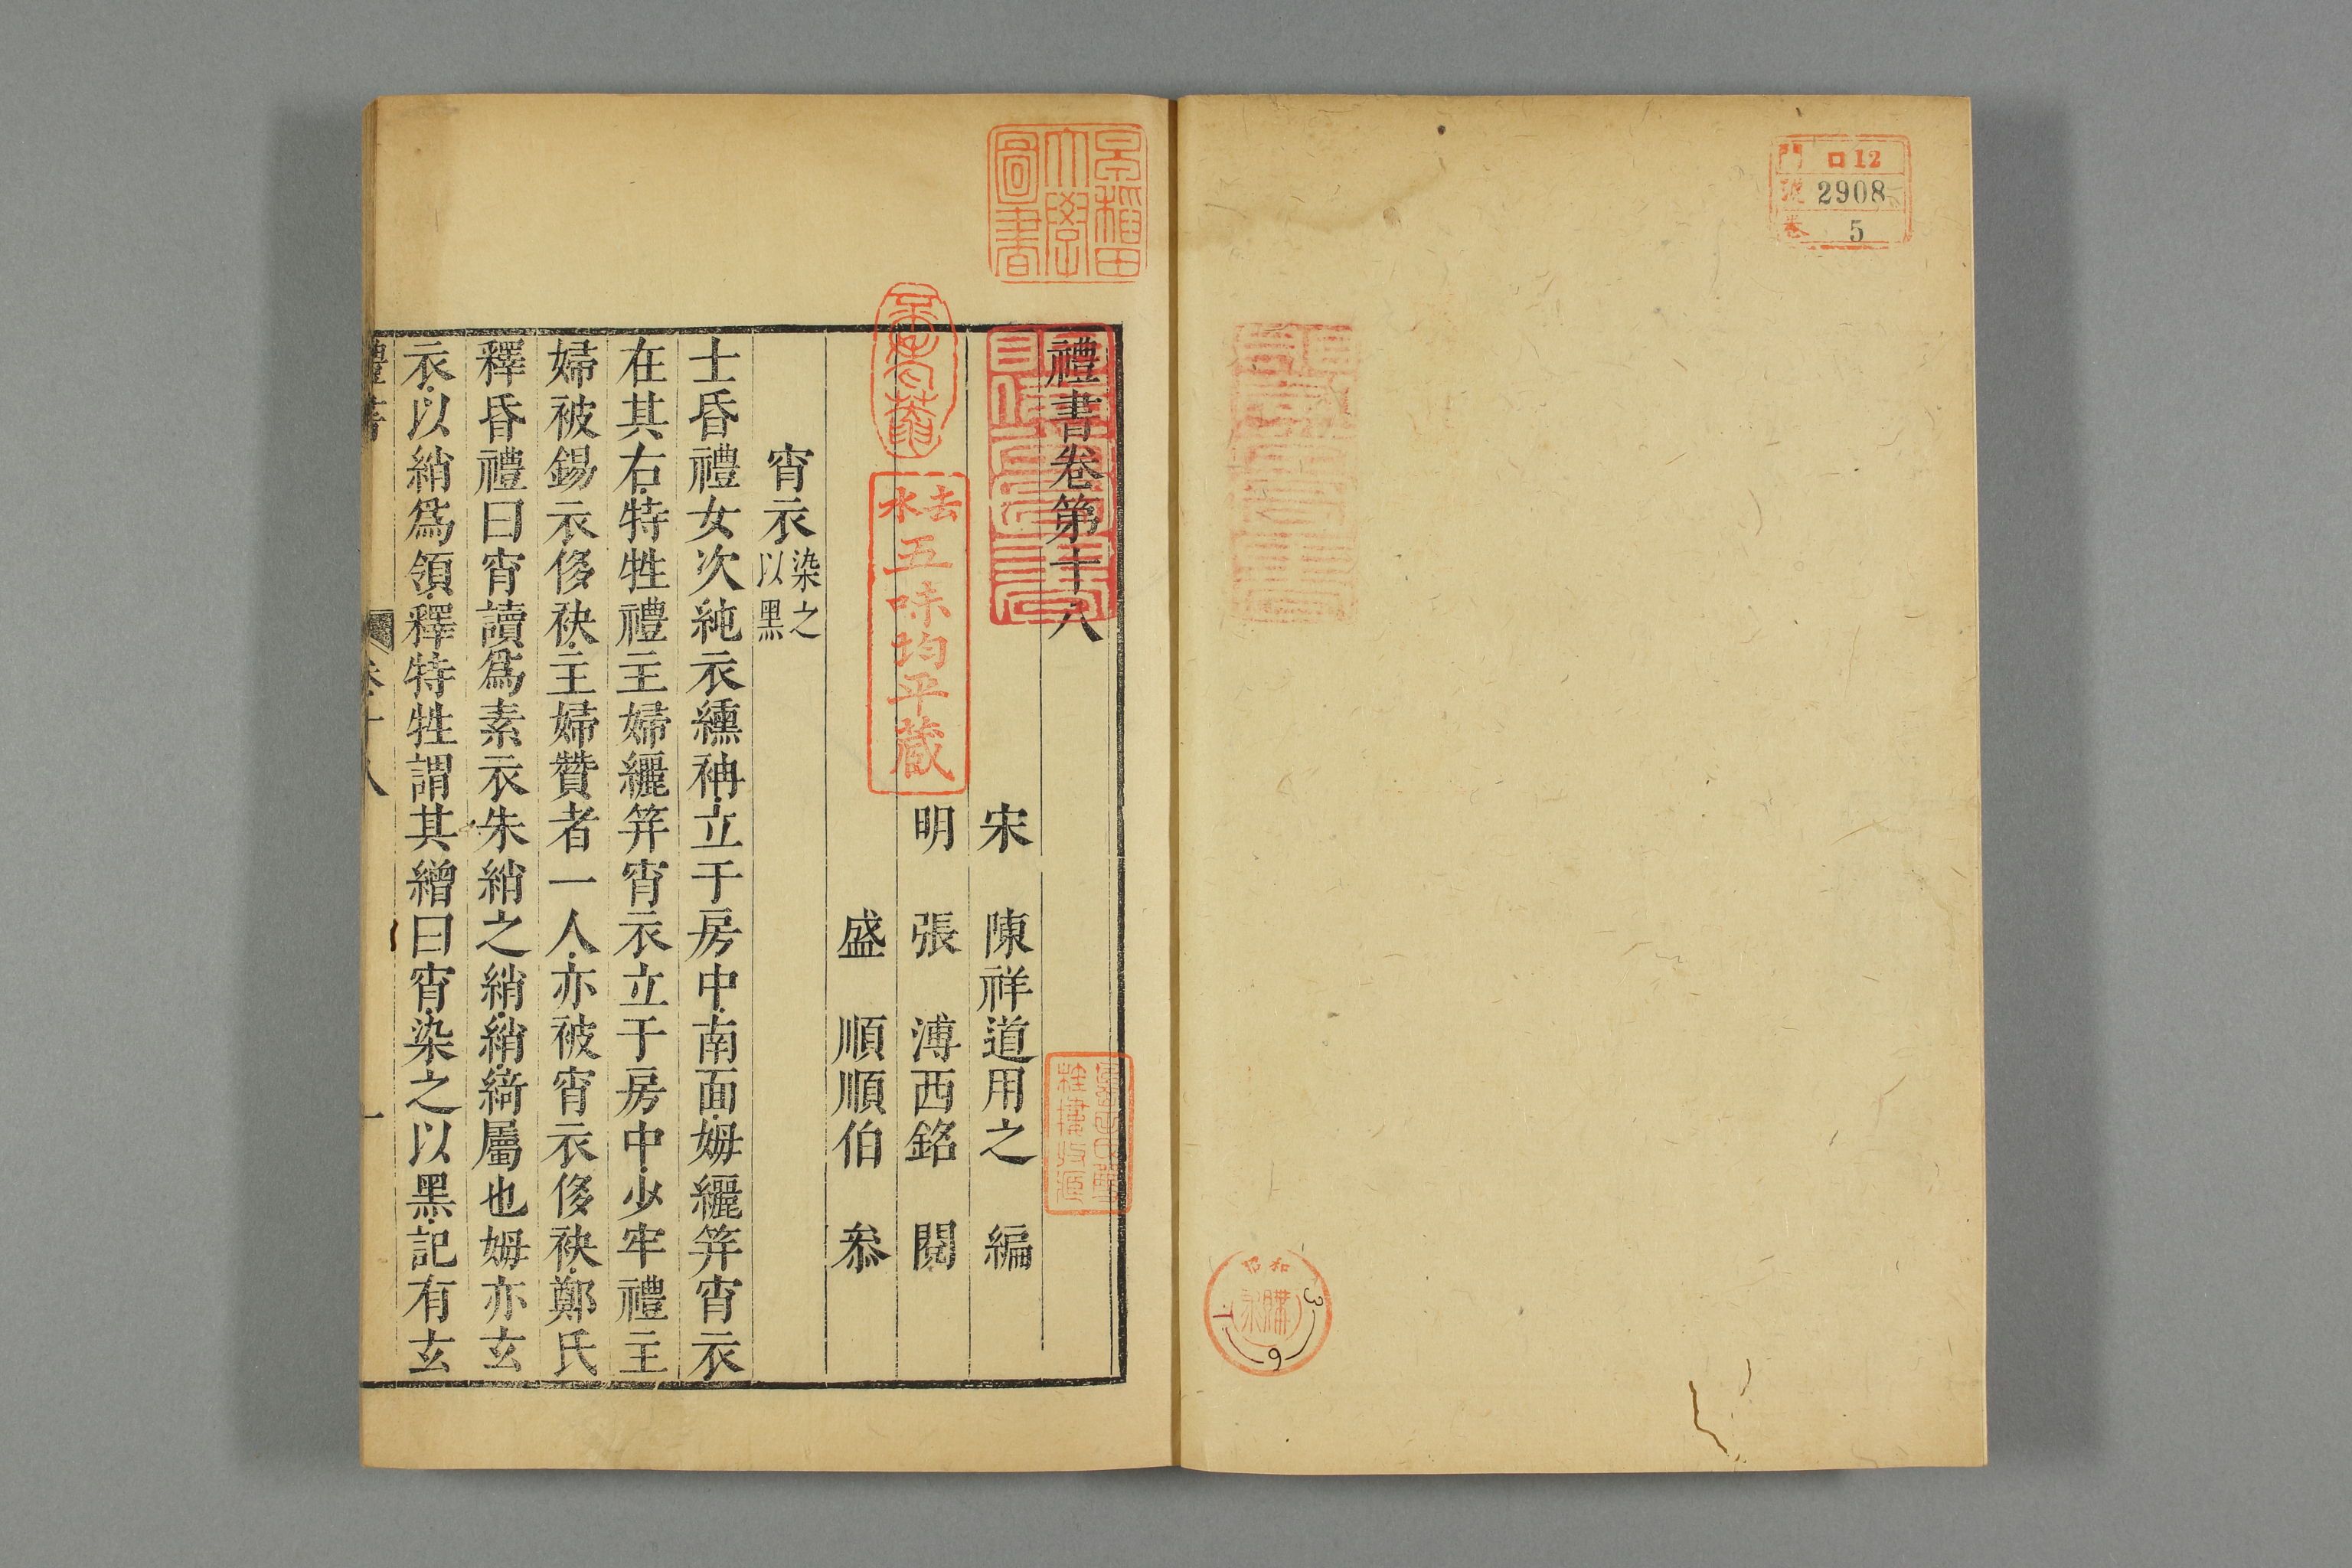 門 ロ12
號 2908
卷 5
昭和
購
3
6
早稲田
大學
圖書
禮書卷第十八
宋 陳祥道用之 編
明 張 溥西銘 閱
盛 順順伯 叅
去水
五味均平蔵
宵衣 染之以黑
士昏禮女次純衣纁袡立于房中南面姆纚笄宵衣
在其右特牲禮主婦纚笄宵衣立于房中少牢禮主
婦被錫衣侈袂主婦贊者一人亦被宵衣侈袂鄭氏
釋昏禮曰宵讀爲素衣朱綃之綃綃綺屬也姆亦玄
衣以綃爲領釋特牲謂其繒曰宵染之以黑記有玄
禮書 卷十八 一